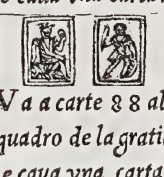 Va a carte 88 al
quadro de la grati
e caua vna carta